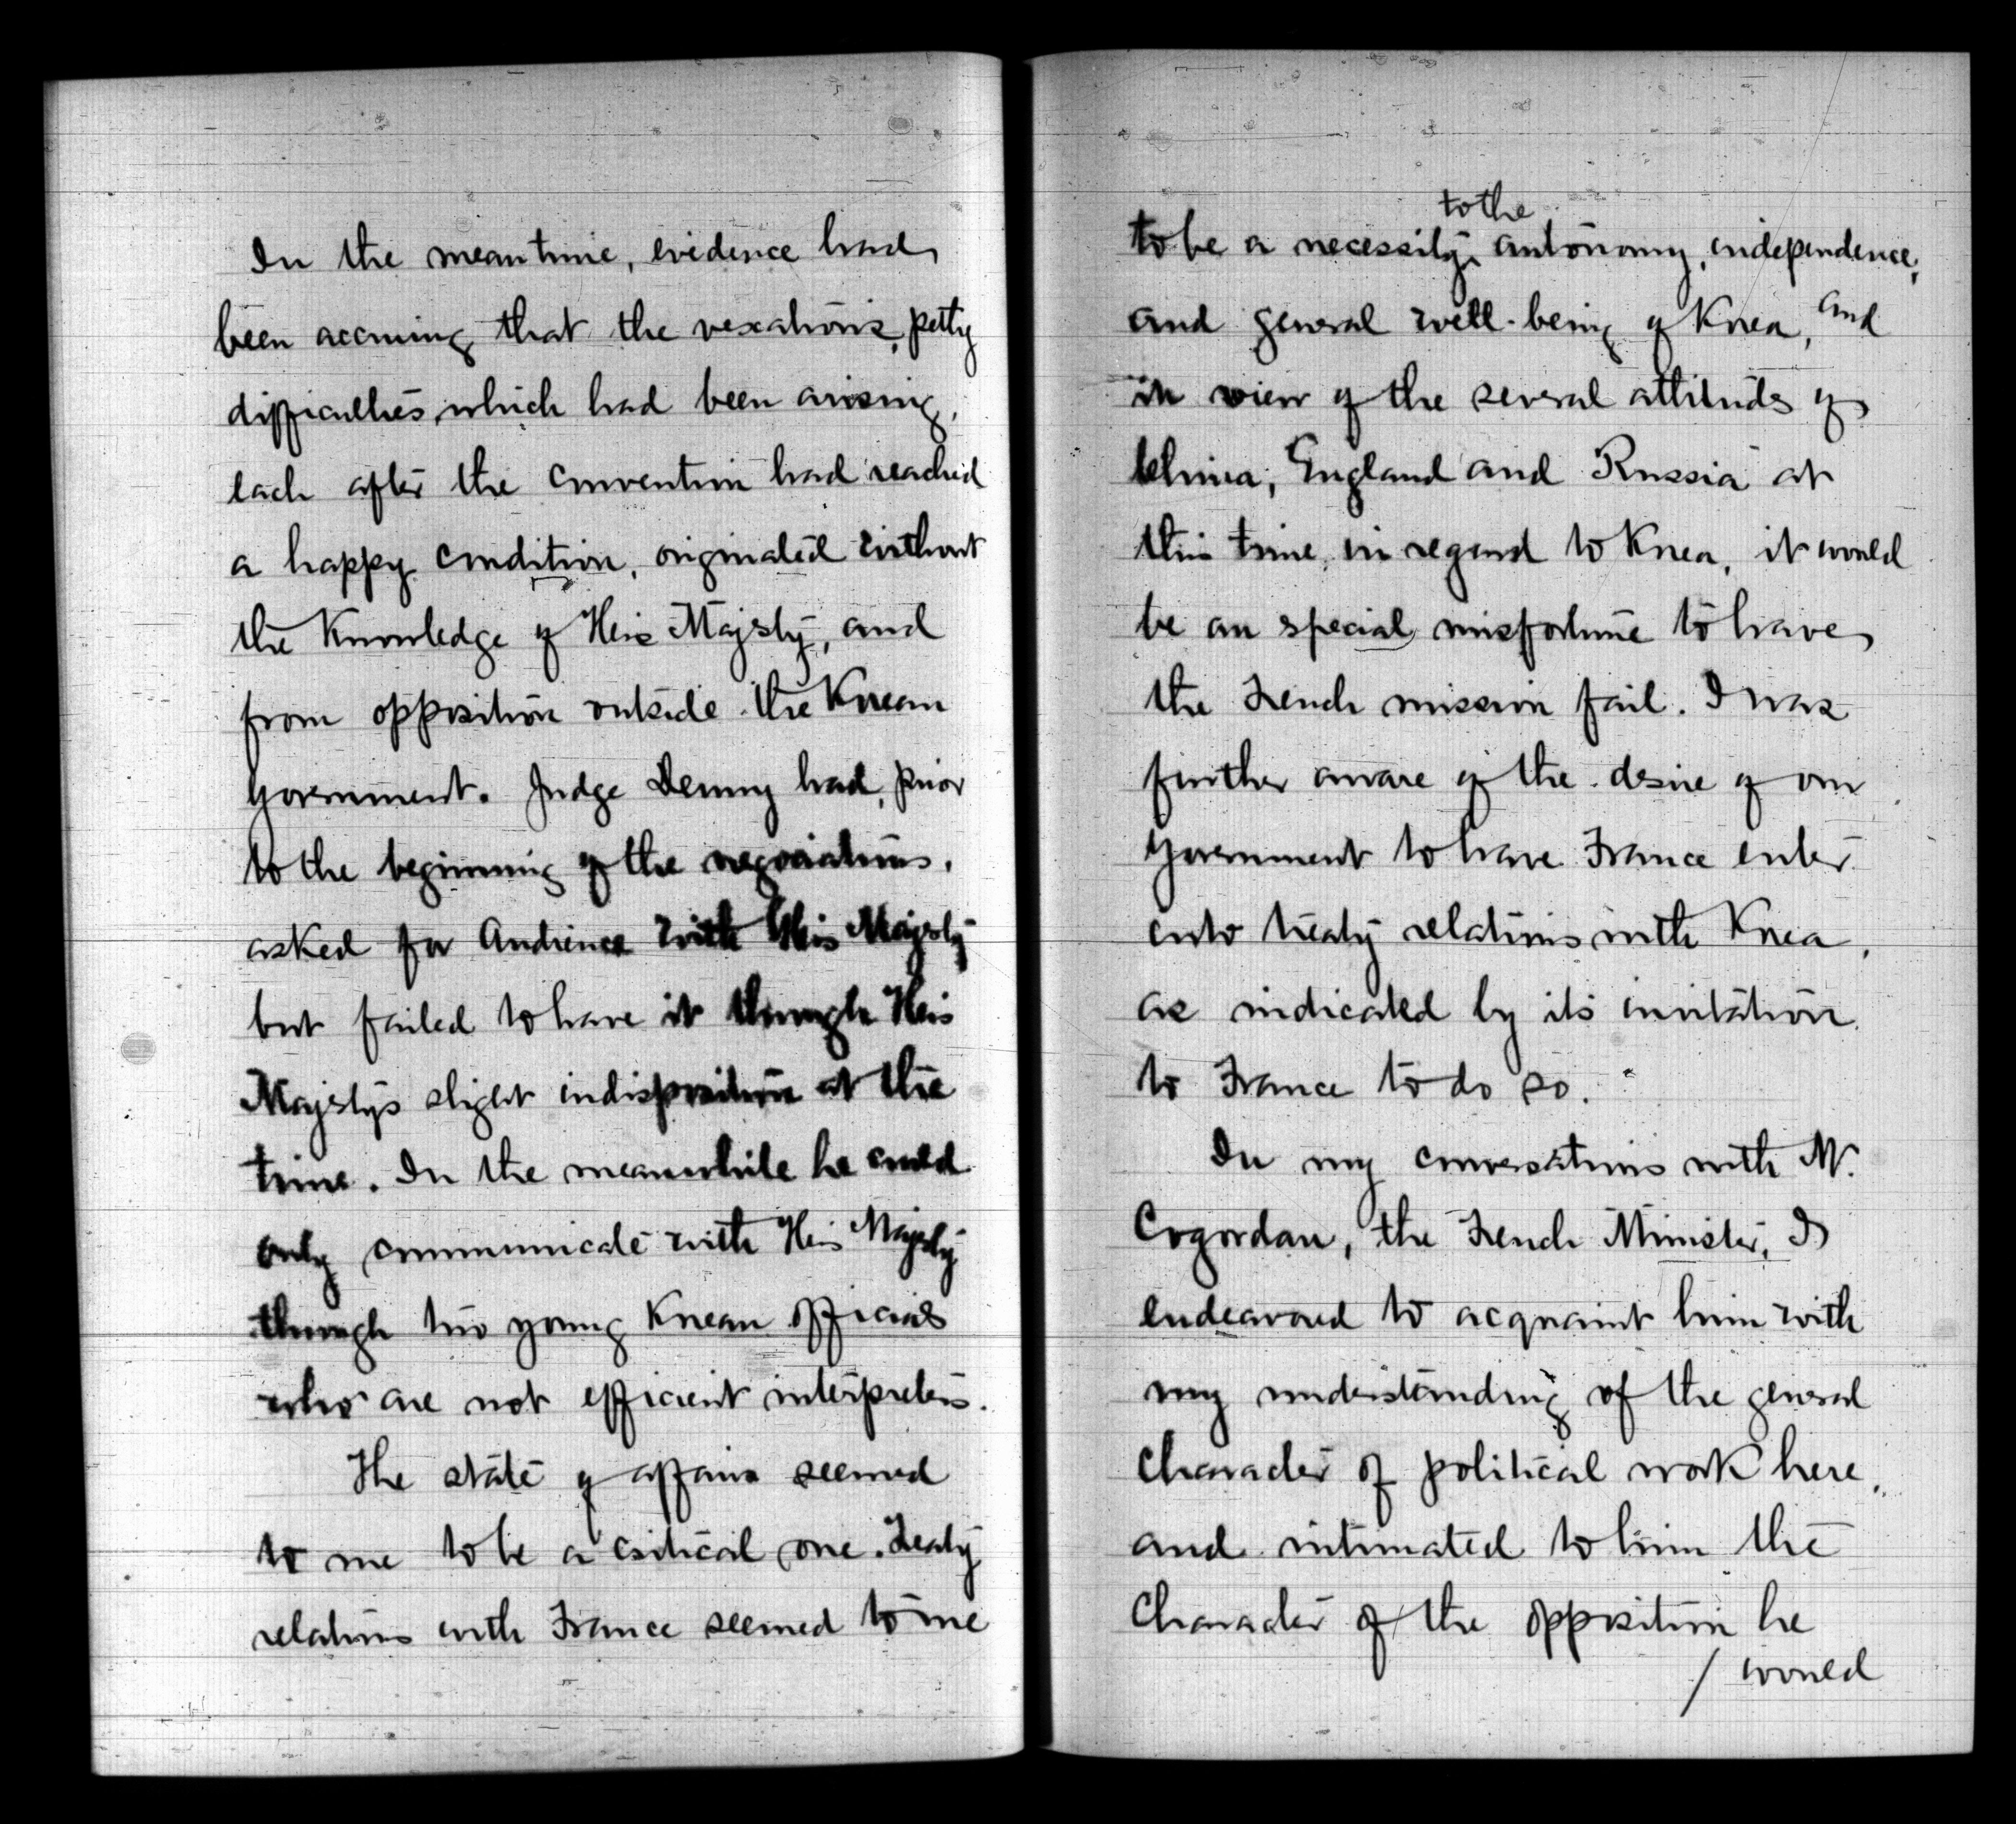 In the meantime, evidence had
been accruing that the vexatious, petty
difficulties, which had been arising,
each after the convention had reached
a happy condition, originated without
the Knowledge of His Majesty, and
from opposition outside the Korean
Government. Judge Denny had, prior
to the beginning of the negociations,
asked for Audience with His Majesty
but failed to have it through His
Majesty's slight indisposition at the
time. In the meanwhile he could
only communicate with His Majesty
through two young Korean officials
who are not efficient interpreters.
The state of affairs seemed
to me to be a critical one. Treaty
relations with France seemed to me
to be a necessity to the autonomy, independence,
and general well-being of Korea, and
in view of the several attitudes of
China, England and Russia at
this time, in regard to Korea, it would
be an special misfortune to have
the French mission fail. I was
further aware of the desire of our
Government to have France enter
into treaty relations with Korea,
as indicated by its invitation
to France to do so.
In my conversations with M.
Cogordan, the French Minister, I
endeavored to acquaint him with
my understanding of the general
character of political work here,
and intimated to him the
character of the opposition he
/ would